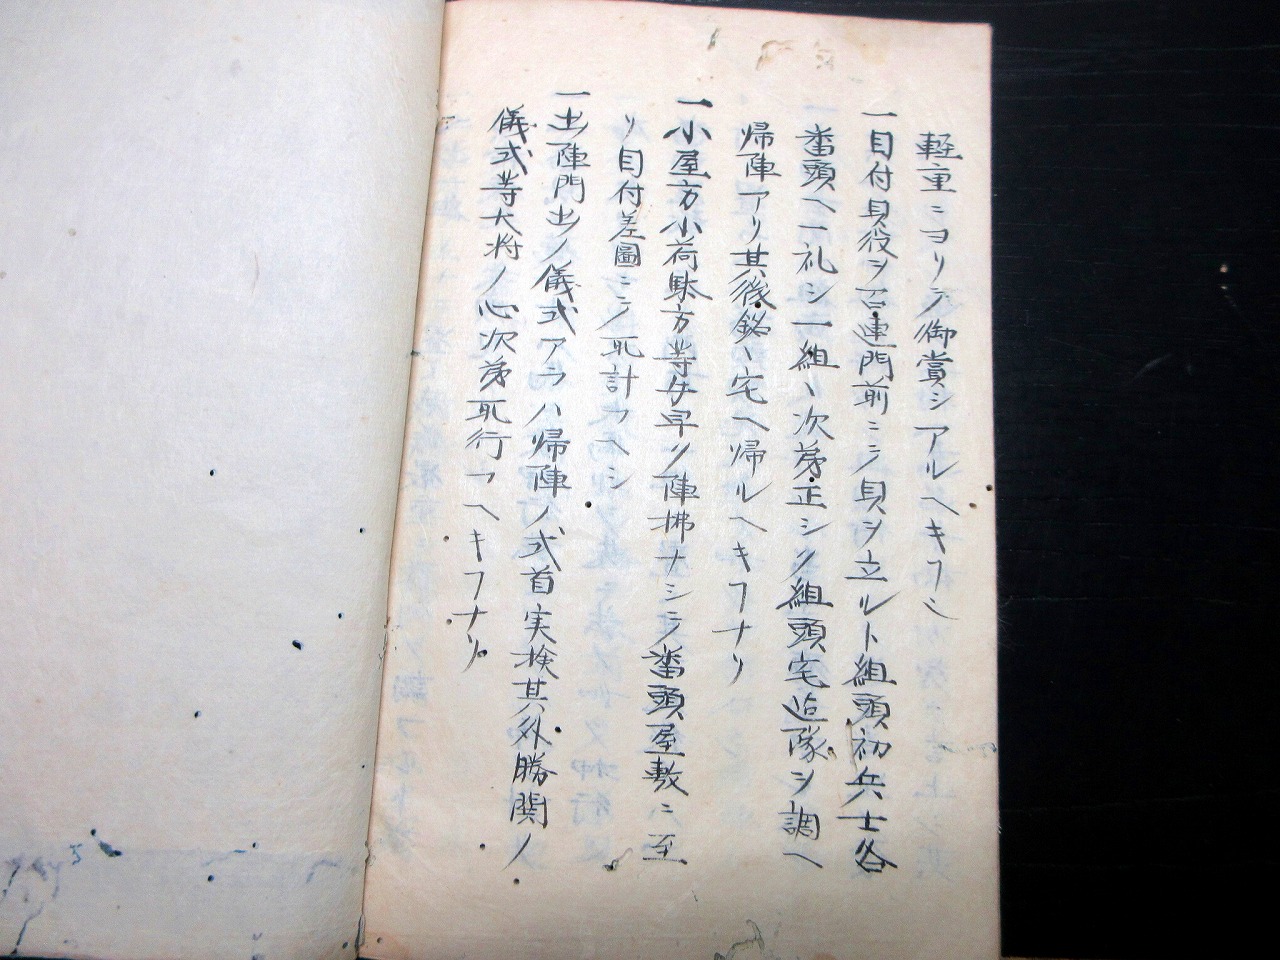 軽重ニヨリテ御賞シアルヘキヿ也
一目付貝役ヲ召連門前ニテ貝ヲ立ルト組頭初兵士各
番頭ヘ一礼シ一組ヽ次第正シク組頭宅迠隊ヲ調ヘ
帰陣アリ其後銘ヽ宅ヘ帰ルヘキヿナリ
一小屋方小荷駄方等手早ク陣拂ナシテ番頭屋敷ニ至
リ目付差圖ニテ取計フヘシ
一出陣門出ノ儀式アラハ帰陣ノ式首実検其外勝鬨ノ
儀式等大将ノ心次第取行フヘキヿナリ